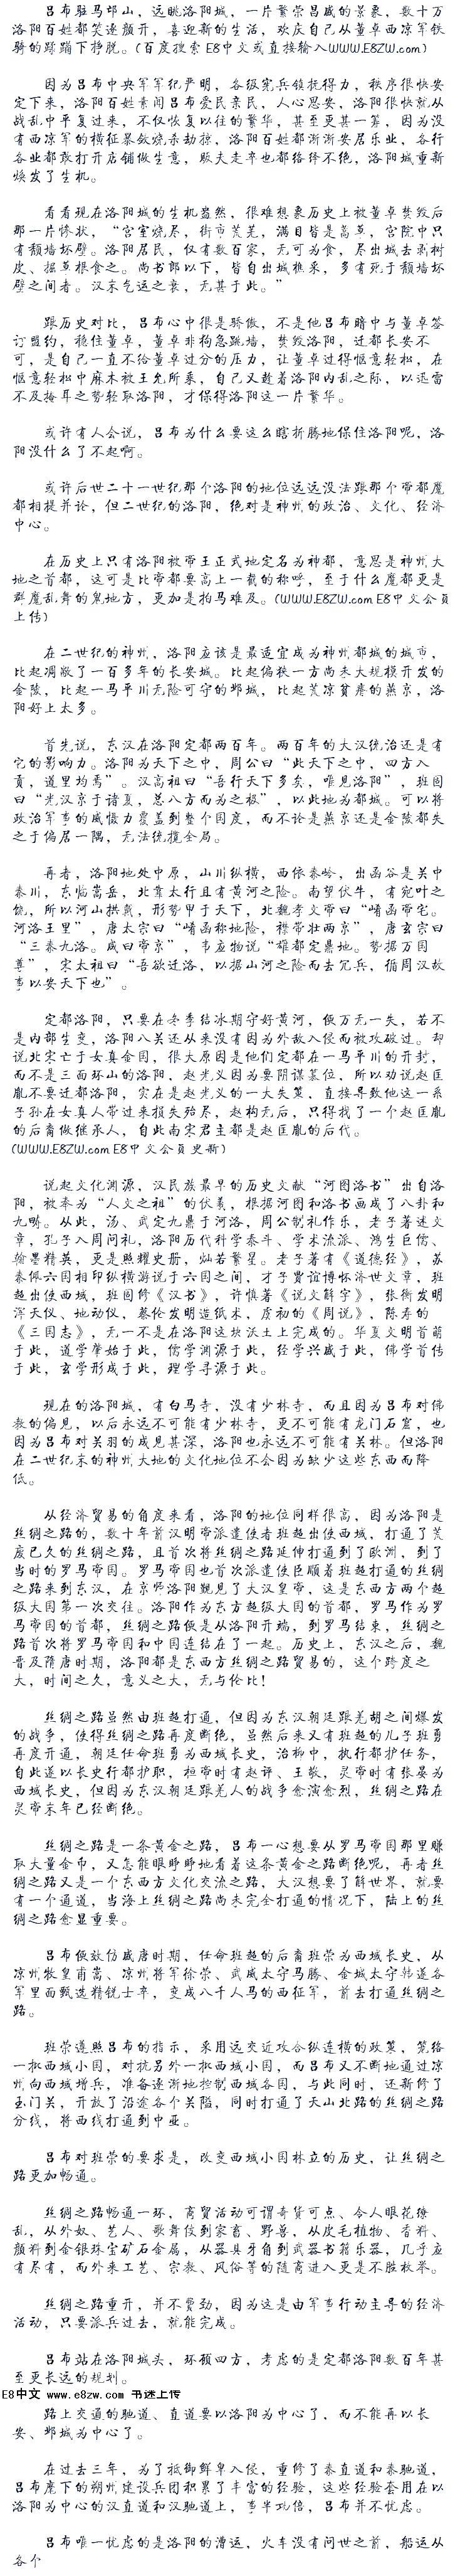 吕布驻马邙山，远眺洛阳城，一片繁荣昌盛的景象，数十万
洛阳百姓都笑逐颜开，喜迎新的生活，欢庆自己从董卓西凉军铁
骑的蹂躏下挣脱。(百度搜索 E8中文或直接输入WWW.E8ZW.com)
因为吕布中央军军纪严明，各级宪兵镇抚得力，秩序很快安
定下来，洛阳百姓素闻吕布爱民亲民，人心思安，洛阳很快就从
战乱中平复过来，不仅恢复以往的繁华，甚至更甚一筹，因为没
有西凉军的横征暴敛烧杀劫掠，洛阳百姓都渐渐安居乐业，各行
各业都敢打开店铺做生意，贩夫走卒也都络绎不绝，洛阳城重新
焕发了生机。
看看现在洛阳城的生机盎然，很难想象历史上被董卓焚毁后
那一片惨状，“宫室烧尽，街市荒芜，满目皆是蒿草，宫院中只
有颓墙坏壁。洛阳居民，仅有数百家，无可为食，尽出城去剥树
皮、掘草根食之。尚书郎以下，皆自出城樵采，多有死于颓墙坏
壁之间者。汉末气运之衰，无甚于此。”
跟历史对比，吕布心中很是骄傲，不是他吕布暗中与董卓签
订盟约，稳住董卓，董卓非狗急跳墙，焚毁洛阳，迁都长安不
可，是自己一直不给董卓过分的压力，让董卓过得惬意轻松，在
惬意轻松中麻木被王允所乘，自己又趁着洛阳内乱之际，以迅雷
不及掩耳之势轻取洛阳，才保得洛阳这一片繁华。
或许有人会说，吕布为什么要这么瞎折腾地保住洛阳呢，洛
阳没什么了不起啊。
或许后世二十一世纪那个洛阳的地位远远没法跟那个帝都魔
都相提并论，但二世纪的洛阳，绝对是神州的政治、文化、经济
中心。
在历史上只有洛阳被帝王正式地定名为神都，意思是神州大
地之首都，这可是比帝都要高上一截的称呼，至于什么魔都更是
群魔乱舞的鬼地方，更加是拍马难及。(WWW.E8ZW.com E8中文会员
上传)
在二世纪的神州，洛阳应该是最适宜成为神州都城的城市，
比起凋敝了一百多年的长安城。比起偏秩一方尚未大规模开发的
金陵，比起一马平川无险可守的邺城，比起荒凉贫瘠的燕京，洛
阳好上太多。
首先说，东汉在洛阳定都两百年。两百年的大汉统治还是有
它的影响力。洛阳为天下之中，周公曰“此天下之中，四方入
贡，道里均焉”。汉高祖曰“吾行天下多矣，唯见洛阳”，班固
曰“光汉京于诸夏，总八方而为之极”，以此地为都城。可以将
政治军事的威慑力覆盖到整个国度，而不论是燕京还是金陵都失
之于偏居一隅，无法统揽全局。
再者，洛阳地处中原，山川纵横，西依秦岭，出函谷是关中
秦川，东临嵩岳，北靠太行且有黄河之险。南望伏牛，有宛叶之
饶，所以河山拱戴，形势甲于天下，北魏孝文帝曰“崤函帝宅。
河洛王里”，唐太宗曰“崤函称地险，襟带壮两京”，唐玄宗曰
“三秦九洛。咸曰帝京”，韦应物说“雄都定鼎地。势据万国
尊”，宋太祖曰“吾欲迁洛，以据山河之险而去冗兵，循周汉故
事以安天下也”。
定都洛阳，只要在冬季结冰期守好黄河，便万无一失，若不
是内部生变，洛阳八关还从来没有因为外敌入侵而被攻破过。却
说北宋亡于女真金国，很大原因是他们定都在一马平川的开封，
而不是三面环山的洛阳，赵光义因为要阴谋篡位，所以劝说赵匡
胤不要迁都洛阳，实在是赵光义的一大失策，直接导致他这一系
子孙在女真人带过来损失殆尽，赵构无后，只得找了一个赵匡胤
的后裔做继承人，自此南宋君主都是赵匡胤的后代。
(WWW.E8ZW.com E8中文会员更新)
说起文化渊源，汉民族最早的历史文献“河图洛书”出自洛
阳，被奉为“人文之祖”的伏羲，根据河图和洛书画成了八卦和
九畴。从此，汤、武定九鼎于河洛，周公制礼作乐，老子著述文
章，孔子入周问礼，洛阳历代科学泰斗、学术流派、鸿生巨儒、
翰墨精英，更是照耀史册，灿若繁星。老子著有《道德经》，苏
秦佩六国相印纵横游说于六国之间，才子贾谊博怀济世文章，班
超出使西域，班固修《汉书》，许慎著《说文解字》，张衡发明
浑天仪、地动仪，蔡伦发明造纸术，虞初的《周说》，陈寿的
《三国志》，无一不是在洛阳这块沃土上完成的。华夏文明首萌
于此，道学肇始于此，儒学渊源于此，经学兴盛于此，佛学首传
于此，玄学形成于此，理学寻源于此。
现在的洛阳城，有白马寺，没有少林寺，而且因为吕布对佛
教的偏见，以后永远不可能有少林寺，更不可能有龙门石窟，也
因为吕布对关羽的成见甚深，洛阳也永远不可能有关林。但洛阳
在二世纪末的神州大地的文化地位不会因为缺少这些东西而降
低。
从经济贸易的角度来看，洛阳的地位同样很高，因为洛阳是
丝绸之路的，数十年前汉明帝派遣使者班超出使西域，打通了荒
废已久的丝绸之路，且首次将丝绸之路延伸打通到了欧洲，到了
当时的罗马帝国。罗马帝国也首次派遣使臣顺着班超打通的丝绸
之路来到东汉，在京师洛阳觐见了大汉皇帝，这是东西方两个超
级大国第一次交往。洛阳作为东方超级大国的首都，罗马作为罗
马帝国的首都，丝绸之路便是从洛阳开端，到罗马结束，丝绸之
路首次将罗马帝国和中国连结在了一起。历史上，东汉之后，魏
晋及隋唐时期，洛阳都是东西方丝绸之路贸易的，这个跨度之
大，时间之久，意义之大，无与伦比！
丝绸之路虽然由班超打通，但因为东汉朝廷跟羌胡之间爆发
的战争，使得丝绸之路再度断绝，虽然后来又有班超的儿子班勇
再度开通，朝廷任命班勇为西域长史，治柳中，执行都护任务，
自此遂以长史行都护职，桓帝时有赵评、王敬，灵帝时有张晏为
西域长史，但因为东汉朝廷跟羌人的战争愈演愈烈，丝绸之路在
灵帝末年已经断绝。
丝绸之路是一条黄金之路，吕布一心想要从罗马帝国那里赚
取大量金币，又怎能眼睁睁地看着这条黄金之路断绝呢，再者丝
绸之路又是一个东西方文化交流之路，大汉想要了解世界，就要
有一个通道，当海上丝绸之路尚未完全打通的情况下，陆上的丝
绸之路愈显重要。
吕布便效仿盛唐时期，任命班超的后裔班荣为西域长史，从
凉州牧皇甫嵩、凉州将军徐荣、武威太守马腾、金城太守韩遂各
军里面甄选精锐士卒，变成八千人马的西征军，前去打通丝绸之
路。
班荣遵照吕布的指示，采用远交近攻合纵连横的政策，笼络
一批西域小国，对抗另外一批西域小国，而吕布又不断地通过凉
州向西域增兵，准备逐渐地控制西域各国，与此同时，还新修了
玉门关，开放了沿途各个关隘，同时打通了天山北路的丝绸之路
分线，将西线打通到中亚。
吕布对班荣的要求是，改变西域小国林立的历史，让丝绸之
路更加畅通。
丝绸之路畅通一环，商贸活动可谓奇货可点、令人眼花缭
乱，从外奴、艺人、歌舞伎到家畜、野兽，从皮毛植物、香料、
颜料到金银珠宝矿石金属，从器具牙角到武器书籍乐器，几乎应
有尽有，而外来工艺、宗教、风俗等的随商进入更是不胜枚举。
丝绸之路重开，并不费劲，因为这是由军事行动主导的经济
活动，只要派兵过去，就能完成。
吕布站在洛阳城头，环顾四方，考虑的是定都洛阳数百年甚
至更长远的规划。
E8中文 www.e8zw.com 书迷上传
路上交通的驰道、直道要以洛阳为中心了，而不能再以长
安、邺城为中心了。
在过去三年，为了抵御鲜卑入侵，重修了秦直道和秦驰道，
吕布麾下的朔州建设兵团积累了丰富的经验，这些经验套用在以
洛阳为中心的汉直道和汉驰道上，事半功倍，吕布并不忧虑。
吕布唯一忧虑的是洛阳的漕运，火车没有问世之前，船运从
各个